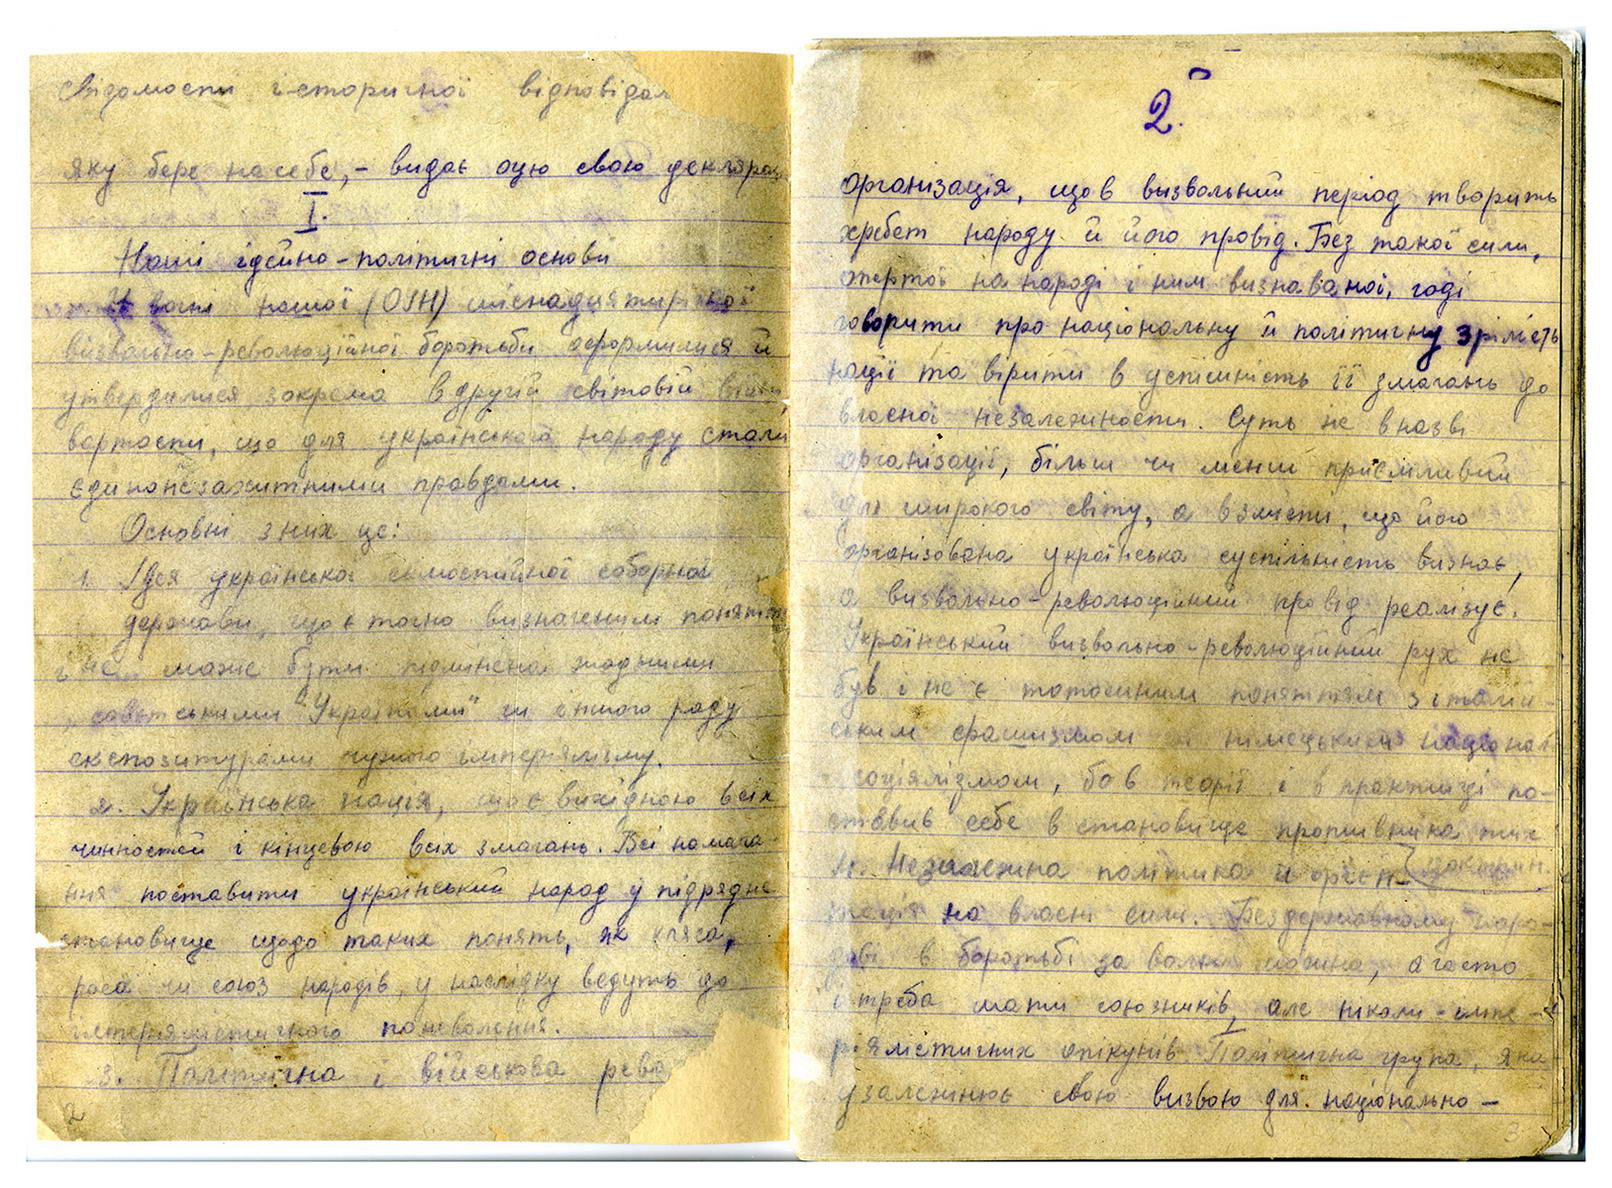 свідомости історичної відповідал
яку бере на себе, - видає оцю свою деклярац
I.
Наші ідейно-політичні основи
У вогні нашої (ОУН) шіснадцятирічної
визвольно-революційної боротьби оформилися й
утвердилися зокрема в другій світовій війні,
вартости, що для українського народу стали
єдинонезахитними правдами.
Основні з них це:
1. Ідея української самостійної соборної
держави, що є точно визначеним поняттям
і не може бути підмінена жадними
„совєтськими "Українами" чи іншого роду
експозитурами чужого імперіялізму.
2. Українська нація, що є вихідною всіх
чинностей і кінцевою всіх змагань. Всі намага-
ння поставити український народ у підрядне
становище щодо таких понять, як кляса,
раса чи союз народів, у наслідку ведуть до
імперялістичного поневолення.
3. Політична і військова рево
2
2.
організація, що в визвольний період творить
хребет народу й його провід. Без такої сили,
опертої на народі і ним визнаваної, годі
говорити про національну й політичну зрілість
нації та вірити в успішність її змагань до
власної незалежности. Суть не в назві
організації, більш чи менш приємливій
для широкого світу, а в змісті, що його
організована українська суспільність визнає,
а визвольно-революційний провід реалізує.
Український визвольно-революційний рух не
був і не є тотожним поняттям з італій-
ським фашизмом німецьким націонал
соціялізмом, бо в теорії і в практиці по-
ставив себе в становище противника тих
доктрин.
4. Незалежна політика й орієн-
тація на власні сили. Бездержавному наро-
дові в боротьбі за волю можна, а часто
і треба мати союзників, але ніколи - імпе-
ріялістичних опікунів. Політична група, яка
узалежнює свою визвою для національно-
3